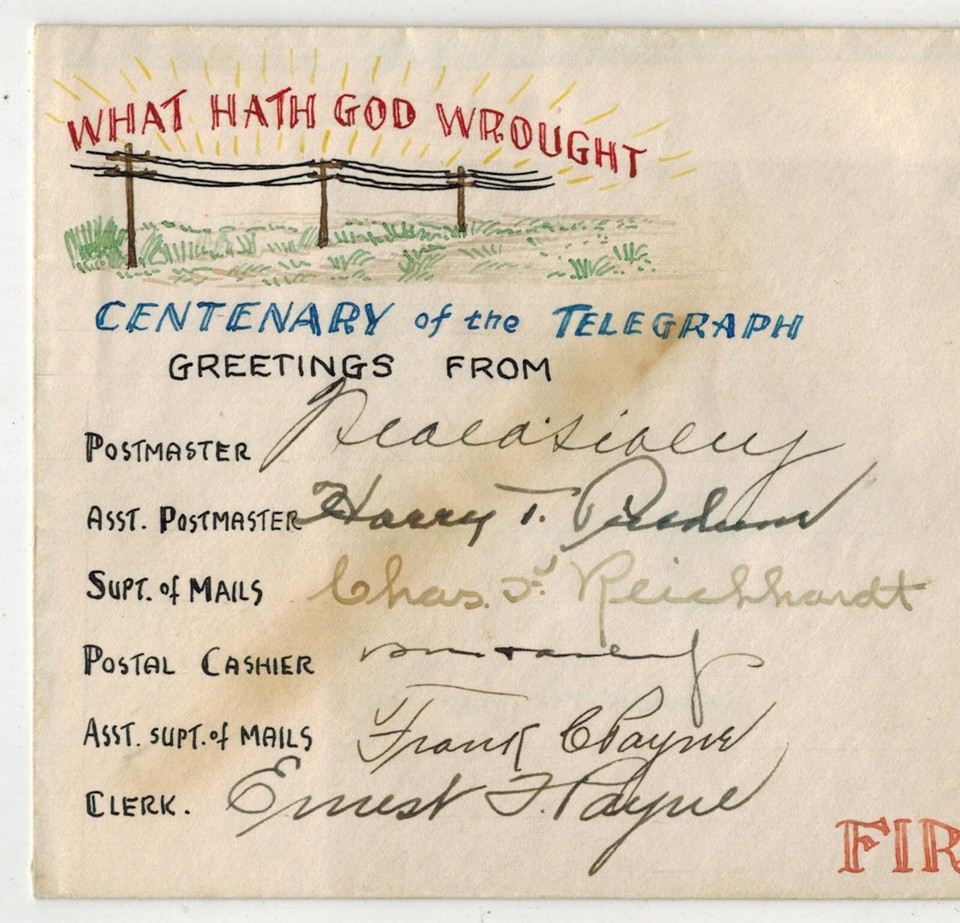 WHAT HATH GOD WROUGHT
CENTENARY of the TELEGRAPH
GREETINGS FROM
POSTMASTER
ASST. POSTMASTER Harry T.
SUPT. of MAILS Chas. F. Reichhardt
POSTAL CASHIER
ASST. SUPT. of MAILS Frank C Payne
CLERK. Ernest F. Payne
FIR